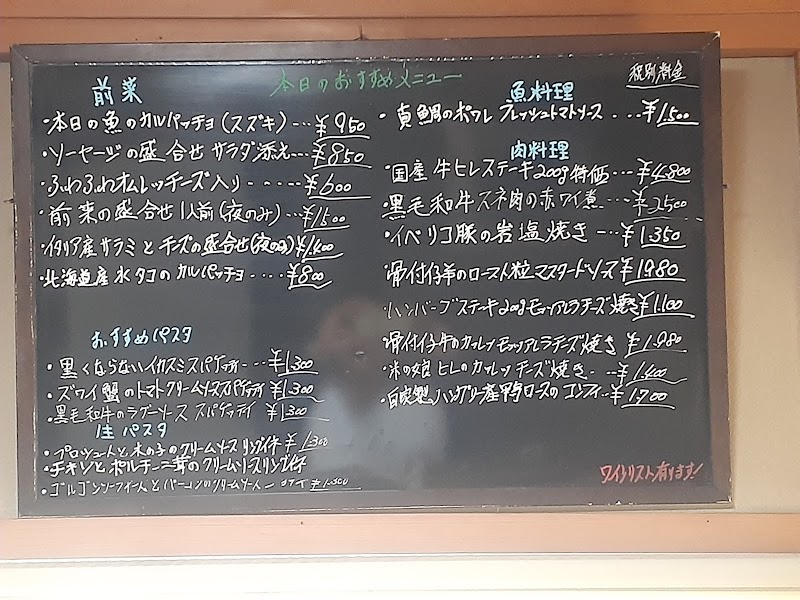 本日のおすすめメニュー
税別料金
前菜
・本日の魚のカルパッチョ(スズキ)…¥950
・ソーセージの盛合せ サラダ添え…¥850
・ふわふわオムレッチーズ入り・・・・・¥600
・前菜の盛合せ 1人前(夜のみ)…¥1500
・イタリア産サラミとチーズの盛合せ(夜のみ)¥1,400
・北海道産水タコのカルパッチョ・・・・¥800
おすすめパスタ
・黒くならないイカスミスパゲッティ…¥1,300
・ズワイ蟹のトマトクリームソーススパゲッティ ¥1,300
・黒毛和牛のラグーソース スパゲッティ ¥1,300
生パスタ
・プロシュートと木の子のクリームソースリングイネ ¥1,300
・チキンとポルチーニ茸のクリームソースリングイネ
・ゴルゴンゾーラチーズとベーコンのクリームソース
魚料理
・真鯛のポワレ フレッシュトマトソース・・・¥1,500
肉料理
・国産牛ヒレステーキ200g特価…¥4,800
・黒毛和牛スネ肉の赤ワイン煮…¥2,500
・イベリコ豚の岩塩焼き…¥1,350
骨付仔羊のロースト粒マスタードソース¥1980
・ハンバーグステーキ200gモッツァレラチーズ焼き¥1,100
骨付仔牛のカツレツモッツァレラチーズ焼き ¥1,980
ヒレのカツレツ チーズ焼き・¥1,400
・自家製ハンガリー産鴨ロースのコンフィ…¥1,700
ワインリスト有ります!